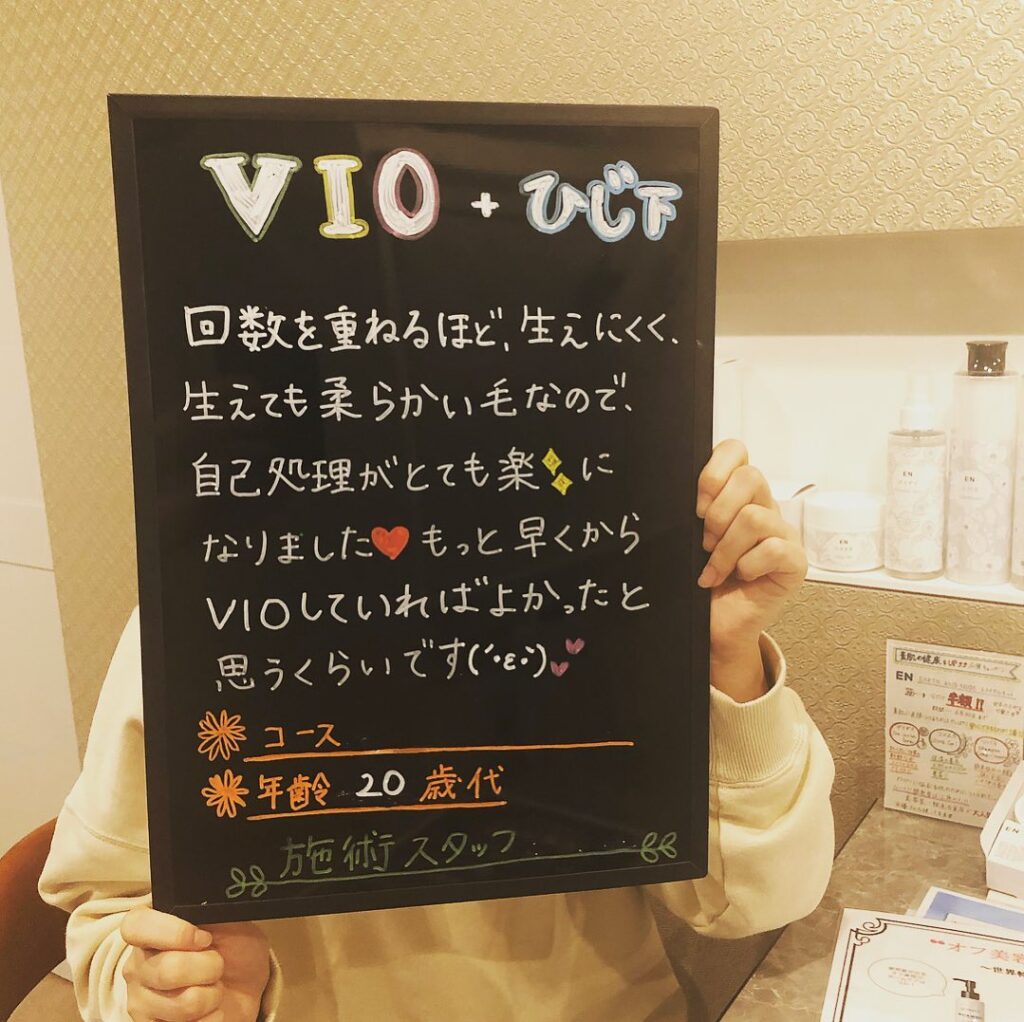 VIO + ひじ下
回数を重ねるほど、生えにくく、
生えても柔らかい毛なので、
自己処理がとても楽に
なりました もっと早くから
VIOしていればよかったと
思うくらいです(´・ε・`)
コース
年齢 20 歳代
施術スタッフ
EN
EN
EN
素肌の健康
EN
半額!!
オフ美容